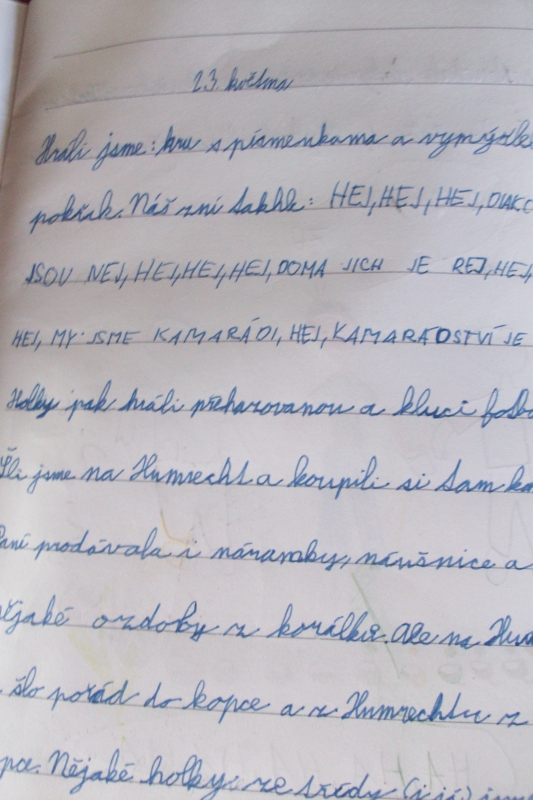 23. května
Hráli jsme: hru s písmenkama a vymýšle
pokřik. Náš zní takhle: HEJ, HEJ, HEJ, DIAKO
JSOU NEJ, HEJ, HEJ, HEJ, DOMA JICH JE REJ, HEJ,
HEJ, MY JSME KAMARÁDI, HEJ, KAMARÁDSTVÍ JE
Holky pak hráli přehazovanou a kluci fotba
Šli jsme na Humrecht a koupili si tam ka
Paní prodávala i náramky, náušnice a
nějaké ozdoby z korálků. Ale na Hum
šlo pořád do kopce a z Humrechtu z
pce. Nějaké holky ze třídy (i já)